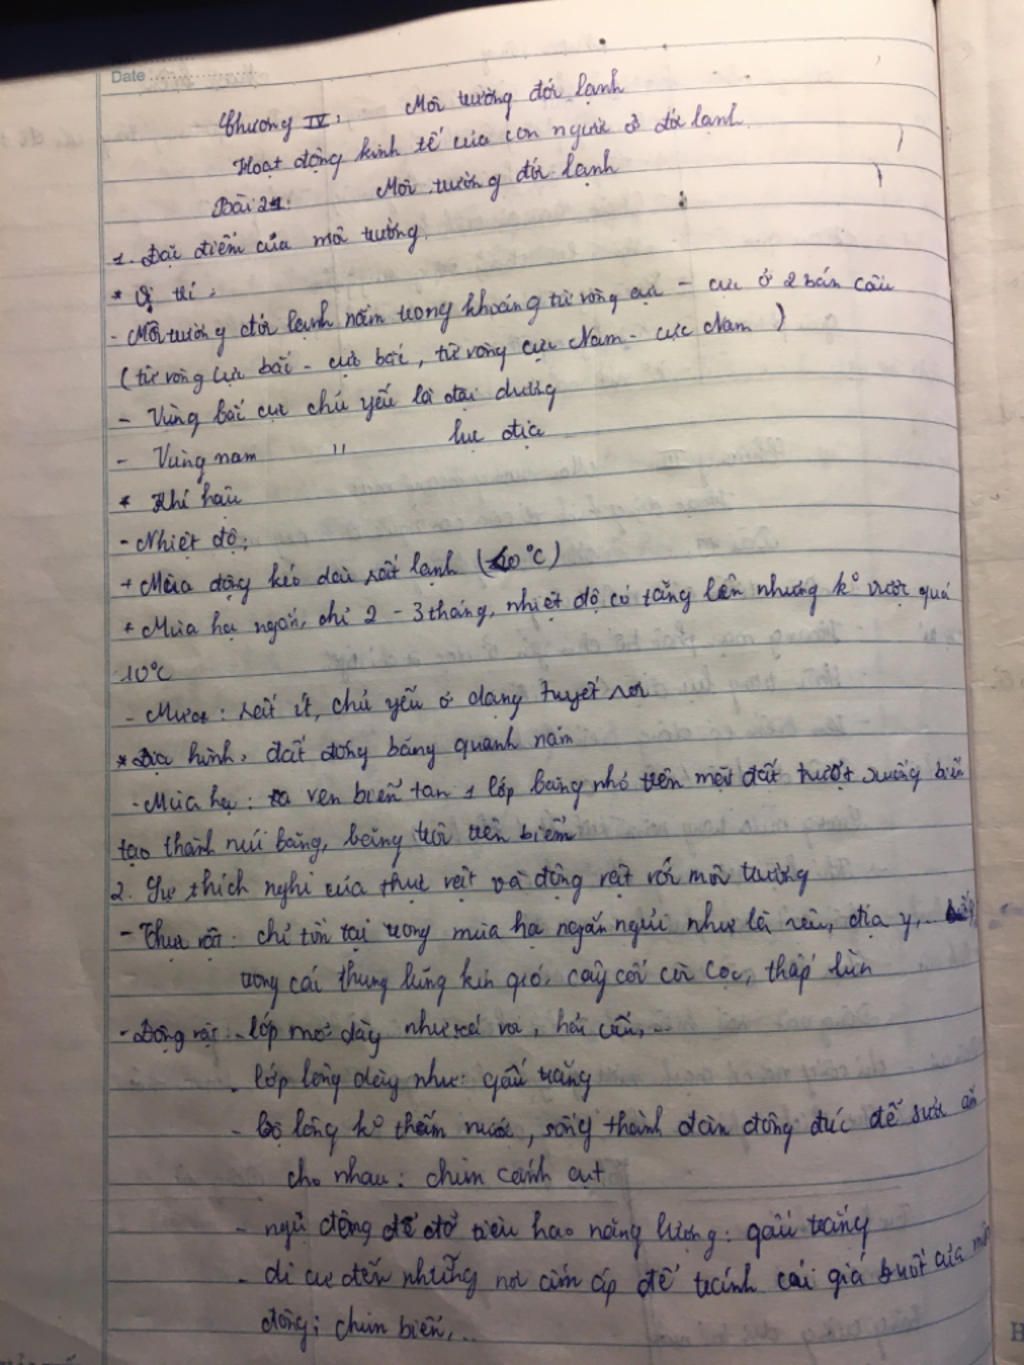 Date
Chương IV: Môi trường đới lạnh
Hoạt động kinh tế của con người ở đới lạnh
Bài 21: Môi trường đới lạnh
1. Đặc điểm của môi trường
* Vị trí:
- Môi trường đới lạnh nằm trong khoảng từ vòng cực - cực ở 2 bán cầu
(từ vòng cực bắc - cực bắc, từ vòng cực Nam - cực Nam)
- Vùng bắc cực chủ yếu là đại dương
- Vùng nam " lục địa
* Khí hậu
- Nhiệt độ:
+ Mùa đông kéo dài rất lạnh (
+ Mùa hạ ngắn, chỉ 2 - 3 tháng, nhiệt độ có tăng lên nhưng k° vượt quá
10°C
- Mưa: rất ít, chủ yếu ở dạng tuyết rơi
* Địa hình: đất đóng băng quanh năm
- Mùa hạ: ven biển tan 1 lớp băng nhỏ trên mặt đất trượt xuống biển
tạo thành núi băng, băng trôi trên biển
2. Sự thích nghi của thực vật và động vật với môi trường
- Thực vật: chỉ tồn tại trong mùa hạ ngắn ngủi như là rêu, địa y,...
trong cái thung lũng kín gió, cây cối còi cọc, thấp lùn
- Động vật: - lớp mỡ dày như cá voi, hải cẩu,...
- lớp lông dày như: gấu trắng
- bộ lông k° thấm nước, sống thành đàn đông đúc để sưởi ấm
cho nhau: chim cánh cụt
- ngủ đông để đỡ tiêu hao năng lượng: gấu trắng
- di cư đến những nơi ấm áp để tránh cái giá buốt của mùa
đông: chim biển,...